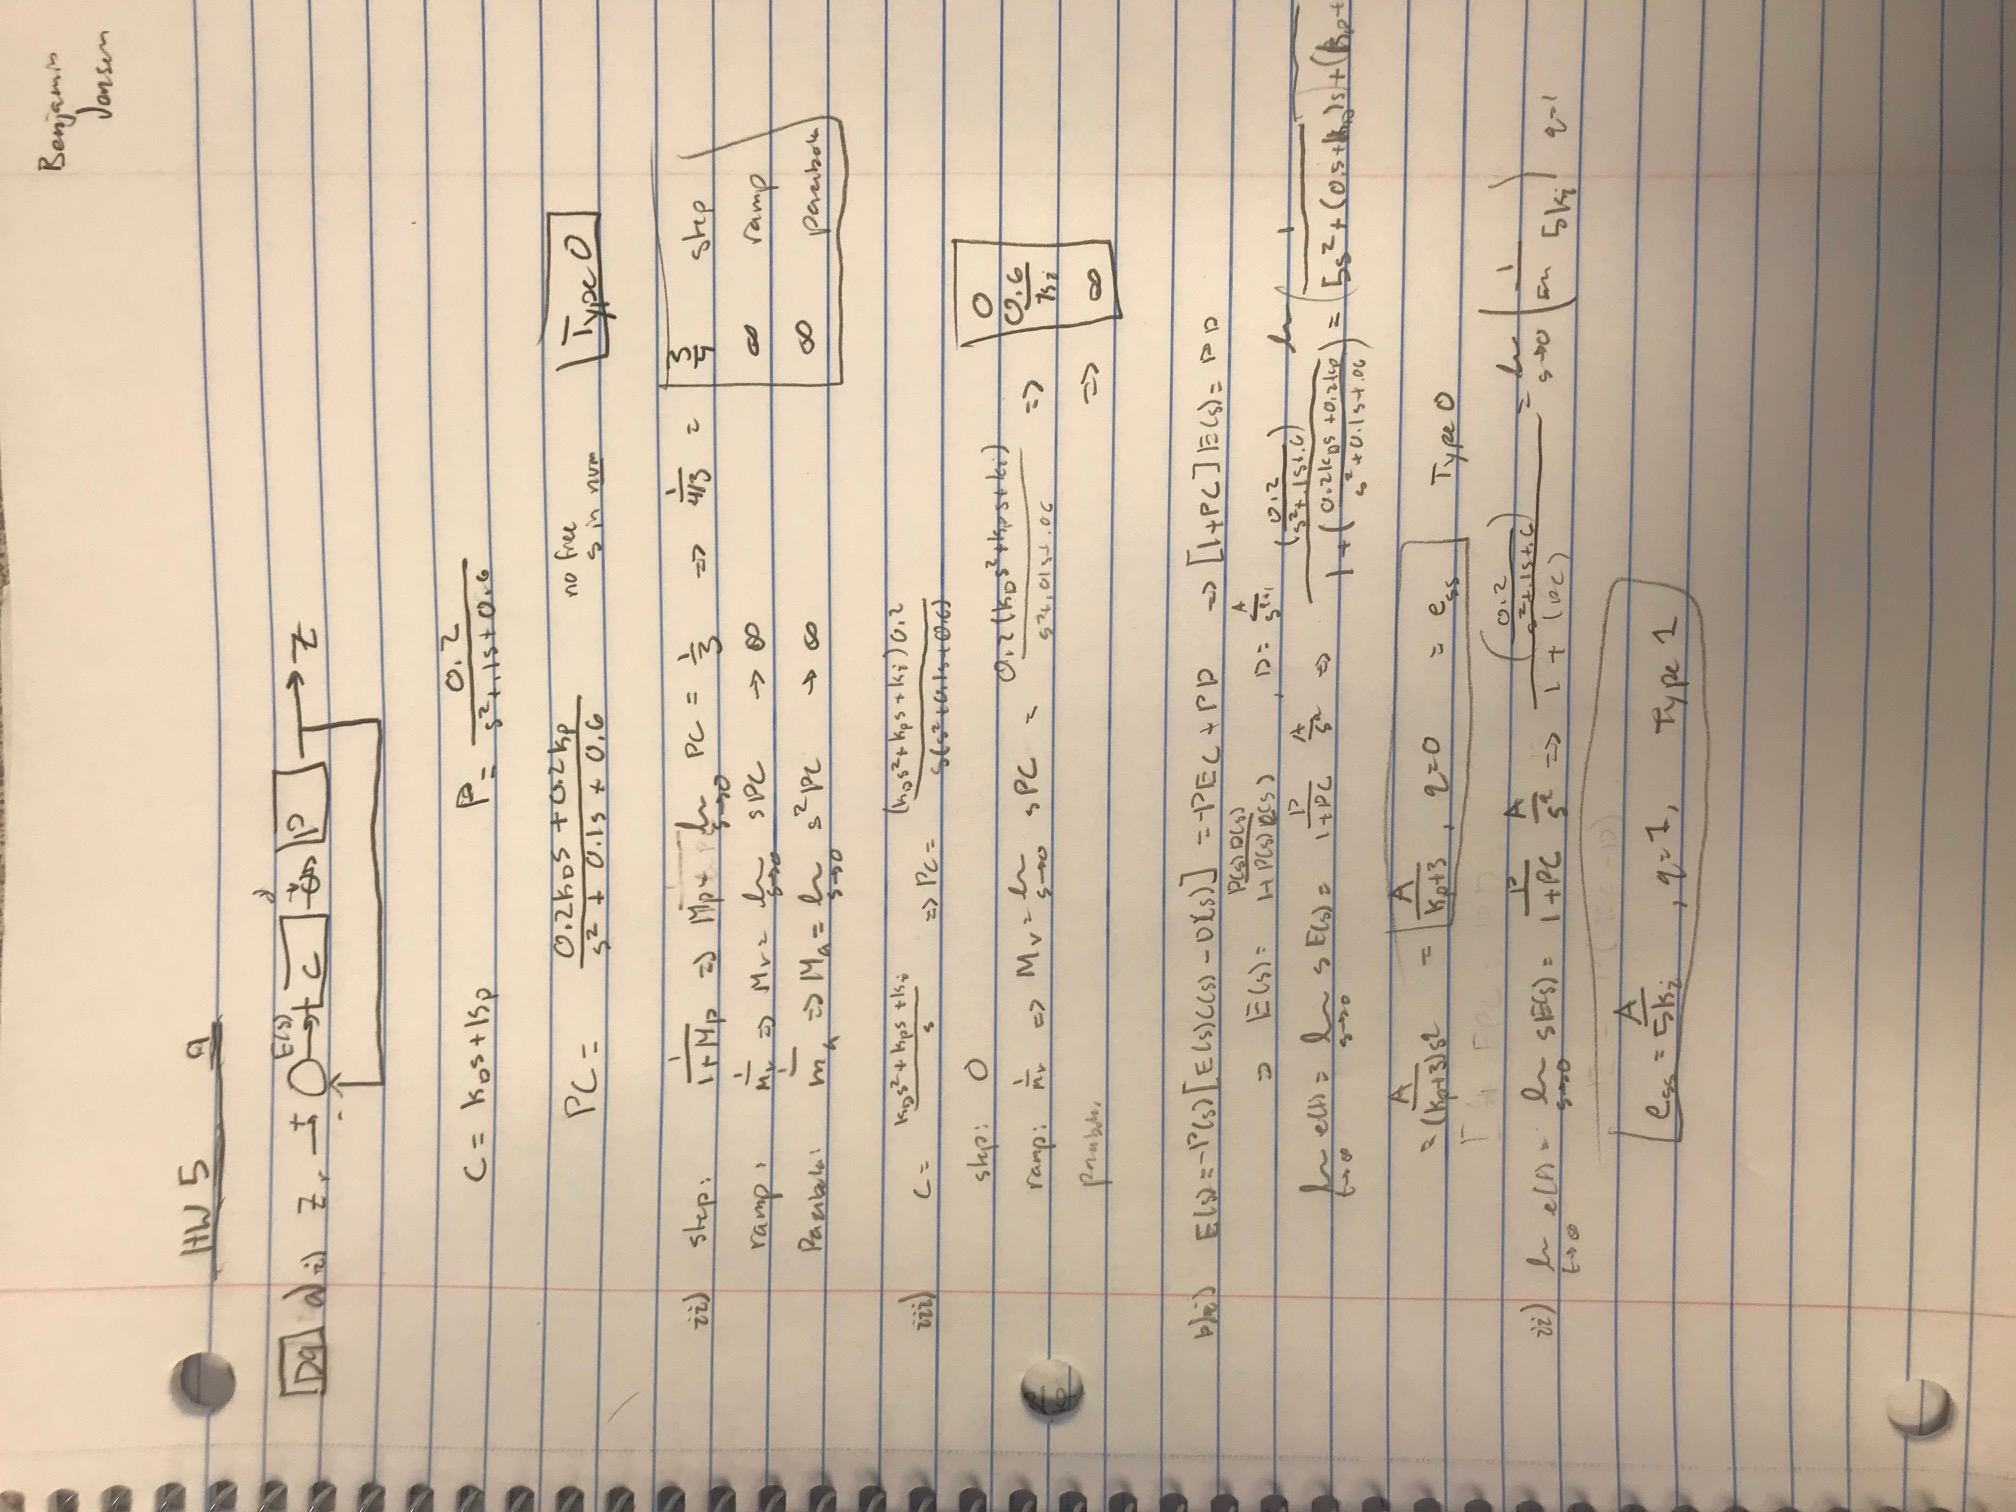 Benjamin
Jensen
HW 5 9
D9 a) i) Zr + - E(s) C d P Z
C = kDs+kp P = 0.2/(s²+.1s+0.6)
PC = (0.2kDs + 0.2kp)/(s² + 0.1s + 0.6) no free s in num Type 0
ii) step: 1/(1+Mp) => Mp = lim s→0 PC = 1/3 => 1/(4/3) = 3/4 step
ramp: 1/Mv => Mv = lim s→0 sPC → ∞ ∞ ramp
Parabola: 1/Ma => Ma = lim s→0 s²PC → ∞ ∞ parabola
iii) C = (kDs²+kps+ki)/s => PC = (kDs²+kps+ki)0.2/(s(s²+0.1s+0.6))
step: 0 0
ramp: 1/Mv => Mv = lim s→0 sPC = 0.2(kDs²+kps+ki)/(s²+.01s+.06) => 0.6/ki
parabola => ∞
b) i) E(s) = -P(s)[E(s)C(s) - D(s)] = -PEC + PD => [1+PC]E(s) = PD
=> E(s) = P(s)D(s)/(1+P(s)C(s)) , D = A/s^(q+1)
lim t→∞ e(t) = lim s→0 sE(s) = P/(1+PC) A/s^q => (0.2/(s²+.1s+.6))/(1+((0.2kDs+0.2kp)/(s²+0.1s+.06))) = lim (1/(5s²+(0.5+kD)s+(kp+
= A/((kp+3)s^q) = A/(kp+3) , q=0 = ess Type 0
ii) lim t→∞ e(t) = lim s→0 sE(s) = P/(1+PC) A/s^q => (0.2/(s²+.1s+.6))/(1+(PC)) = lim s→0 (1/ 5ki) q=1
ess = A/5ki , q=1, Type 1